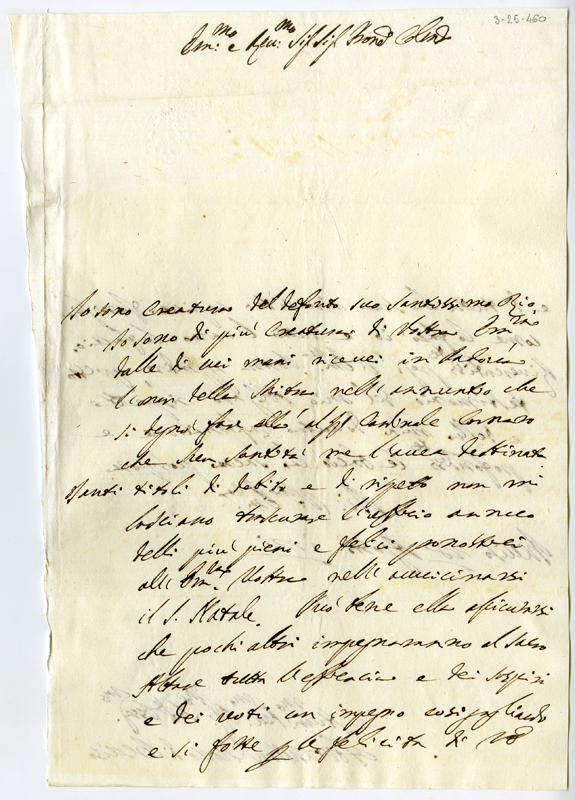 3-25-460
Em:mo e Rev:mo Sig Sig Pron Colmo
Io sono Creatura del defonto suo Santissimo Zio
Io sono di più Creatura di Vostra Em:
dalle di cui mani ricevei in Padova
l'onor della Mitra nell'annunzio che
si degnò fare ella al Sig Cardinale Cornaro
che Sua Santità me l'avea destinata
Tanti titoli di debito e di rispetto non mi
lasciano trascurare l'ufficio annuo
delli più pieni e felici pronostici
all' Em:za Vostra nell'avvicinarsi
il S. Natale. Può bene ella assicurarsi
che pochi altri impegneranno al Sacro
Altare tutta l'efficacia e dei sospiri
e dei voti con impegno così
e si forte per la felicità di